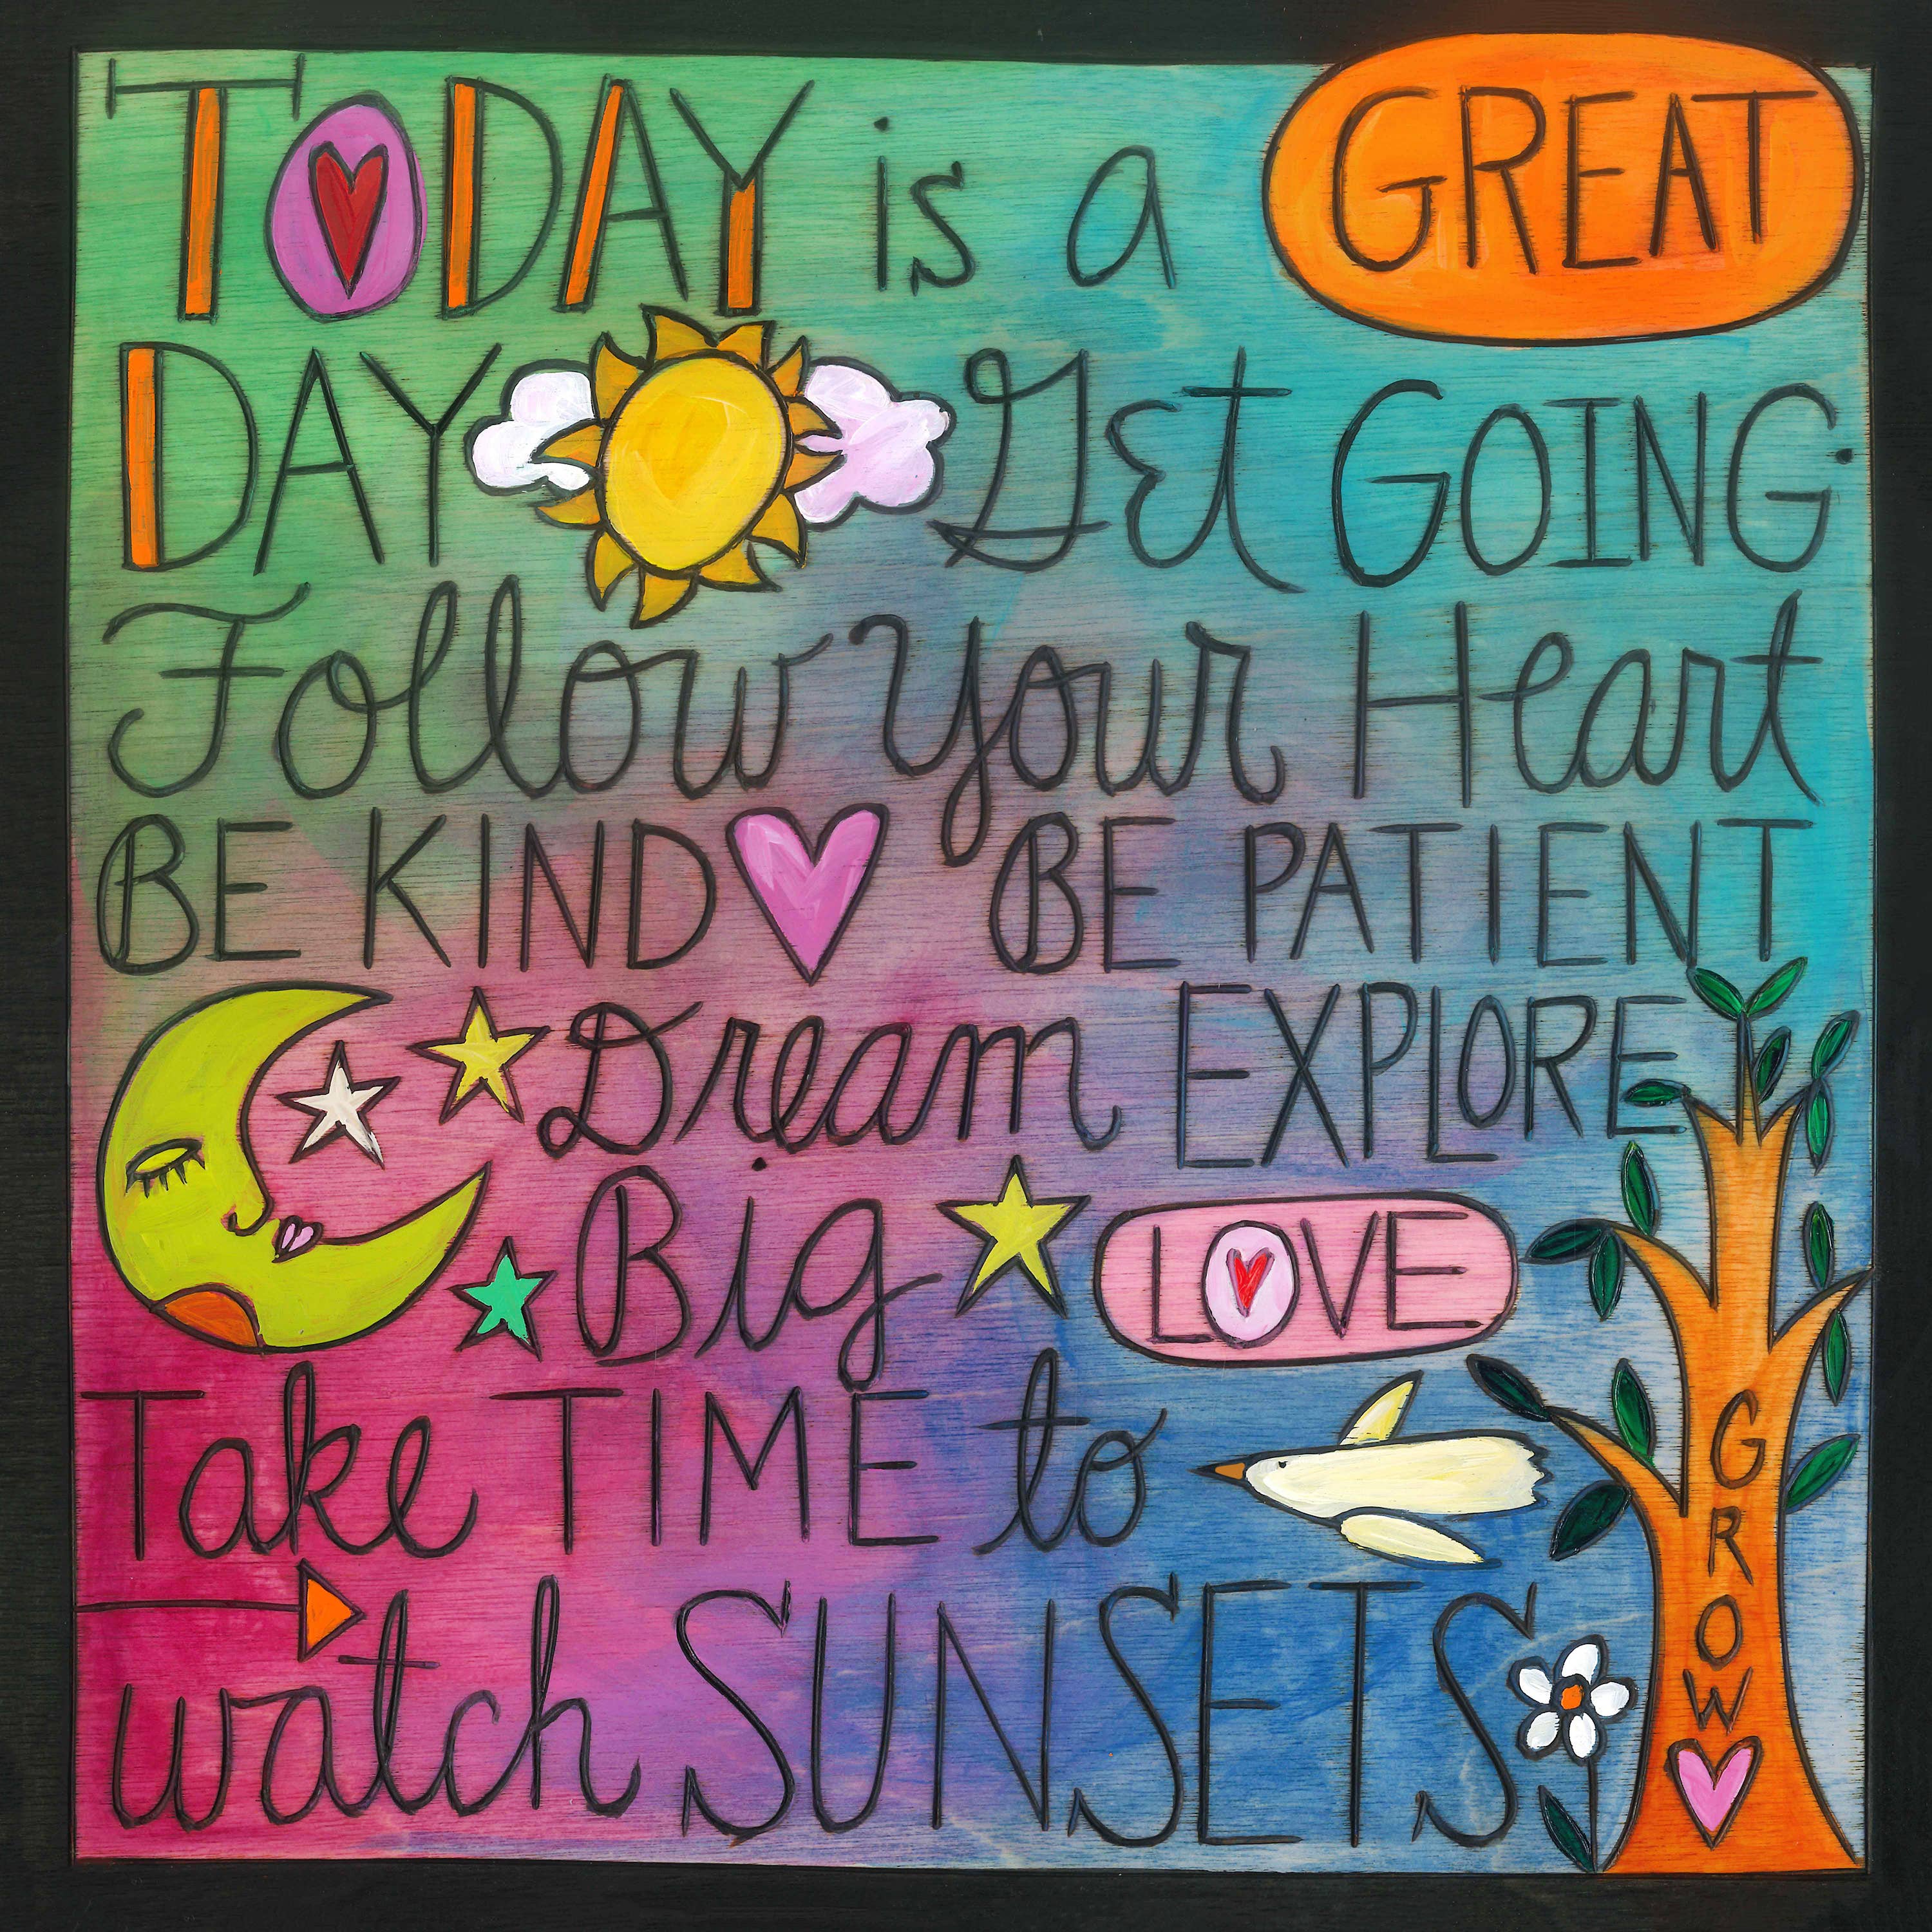 TODAY is a GREAT
DAY Get GOING.
Follow Your Heart
BE KIND BE PATIENT
Dream EXPLORE
Big LOVE
Take TIME to
watch SUNSETS
GROW